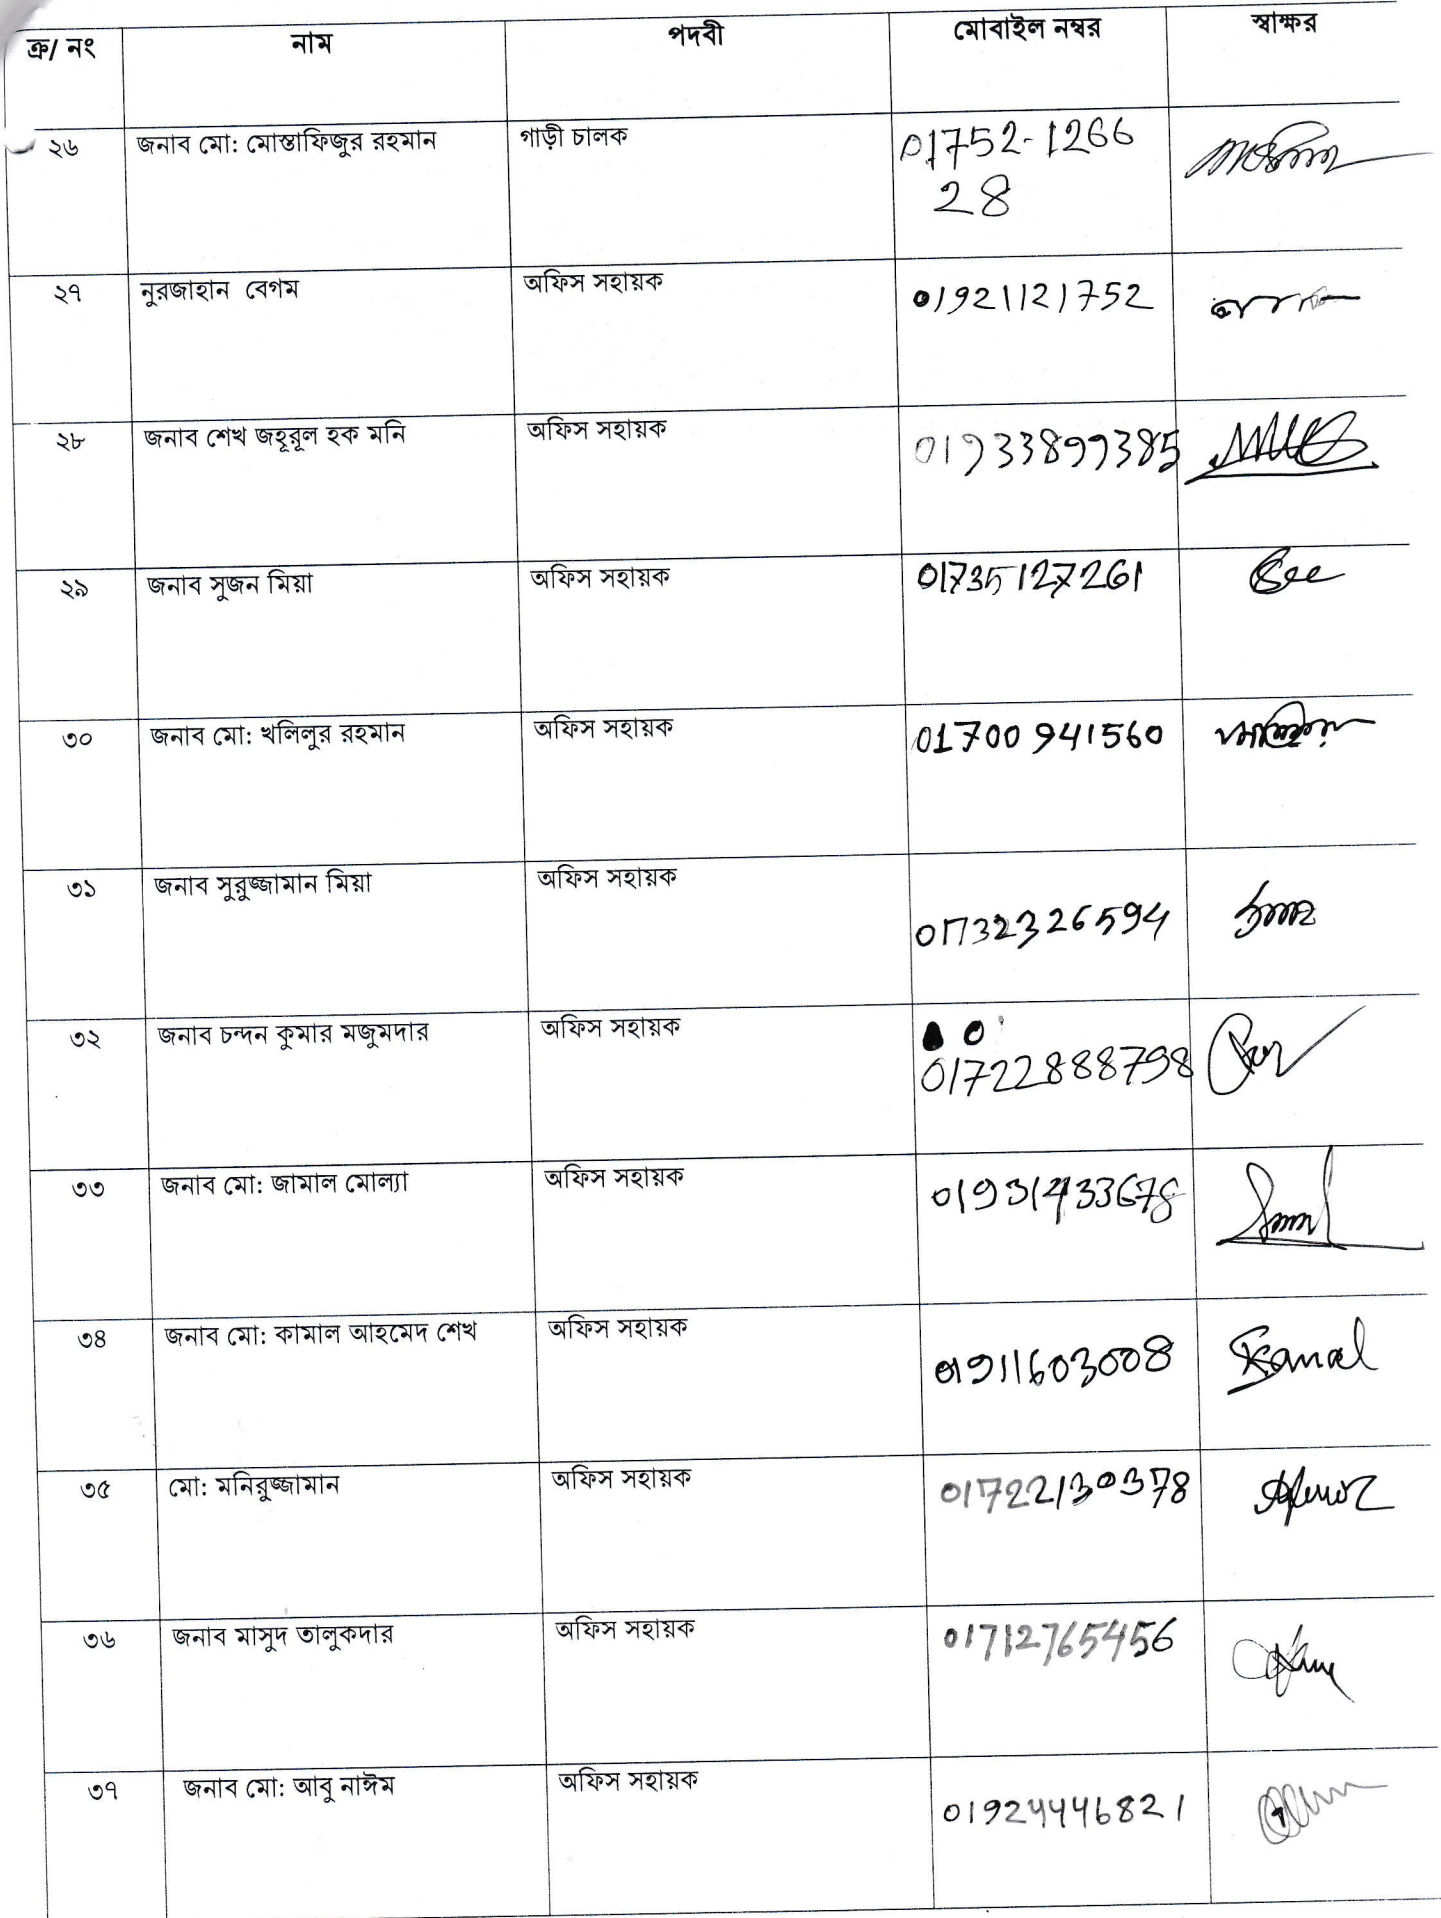 ক্র/ নং নাম পদবী মোবাইল নম্বর স্বাক্ষর
২৬ জনাব মো: মোস্তাফিজুর রহমান গাড়ী চালক 01752-1266
28
২৭ নুরজাহান বেগম অফিস সহায়ক 01921121752
২৮ জনাব শেখ জহূরুল হক মনি অফিস সহায়ক 01933899385
২৯ জনাব সুজন মিয়া অফিস সহায়ক 01735127261
৩০ জনাব মো: খলিলুর রহমান অফিস সহায়ক 01700941560
৩১ জনাব সুরুজ্জামান মিয়া অফিস সহায়ক 01732326594
৩২ জনাব চন্দন কুমার মজুমদার অফিস সহায়ক 01722888798
৩৩ জনাব মো: জামাল মোল্যা অফিস সহায়ক 01931433678
৩৪ জনাব মো: কামাল আহমেদ শেখ অফিস সহায়ক 01911603008 Kamal
৩৫ মো: মনিরুজ্জামান অফিস সহায়ক 01722130378
৩৬ জনাব মাসুদ তালুকদার অফিস সহায়ক 01712765456
৩৭ জনাব মো: আবু নাঈম অফিস সহায়ক 01924446821